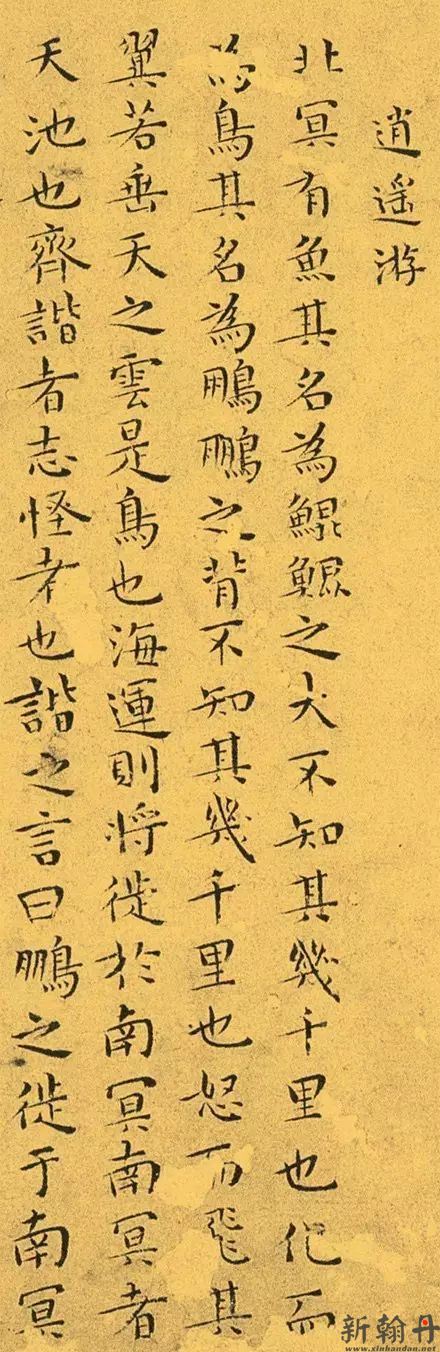 逍遥游
北冥有魚其名為鯤鯤之大不知其幾千里也化而
為鳥其名為鵬鵬之背不知其幾千里也怒而飛其
翼若垂天之雲是鳥也海運則将徙於南冥南冥者
天池也齊諧者志怪者也諧之言曰鵬之徙于南冥
新翰丹
www.xinhandan.net